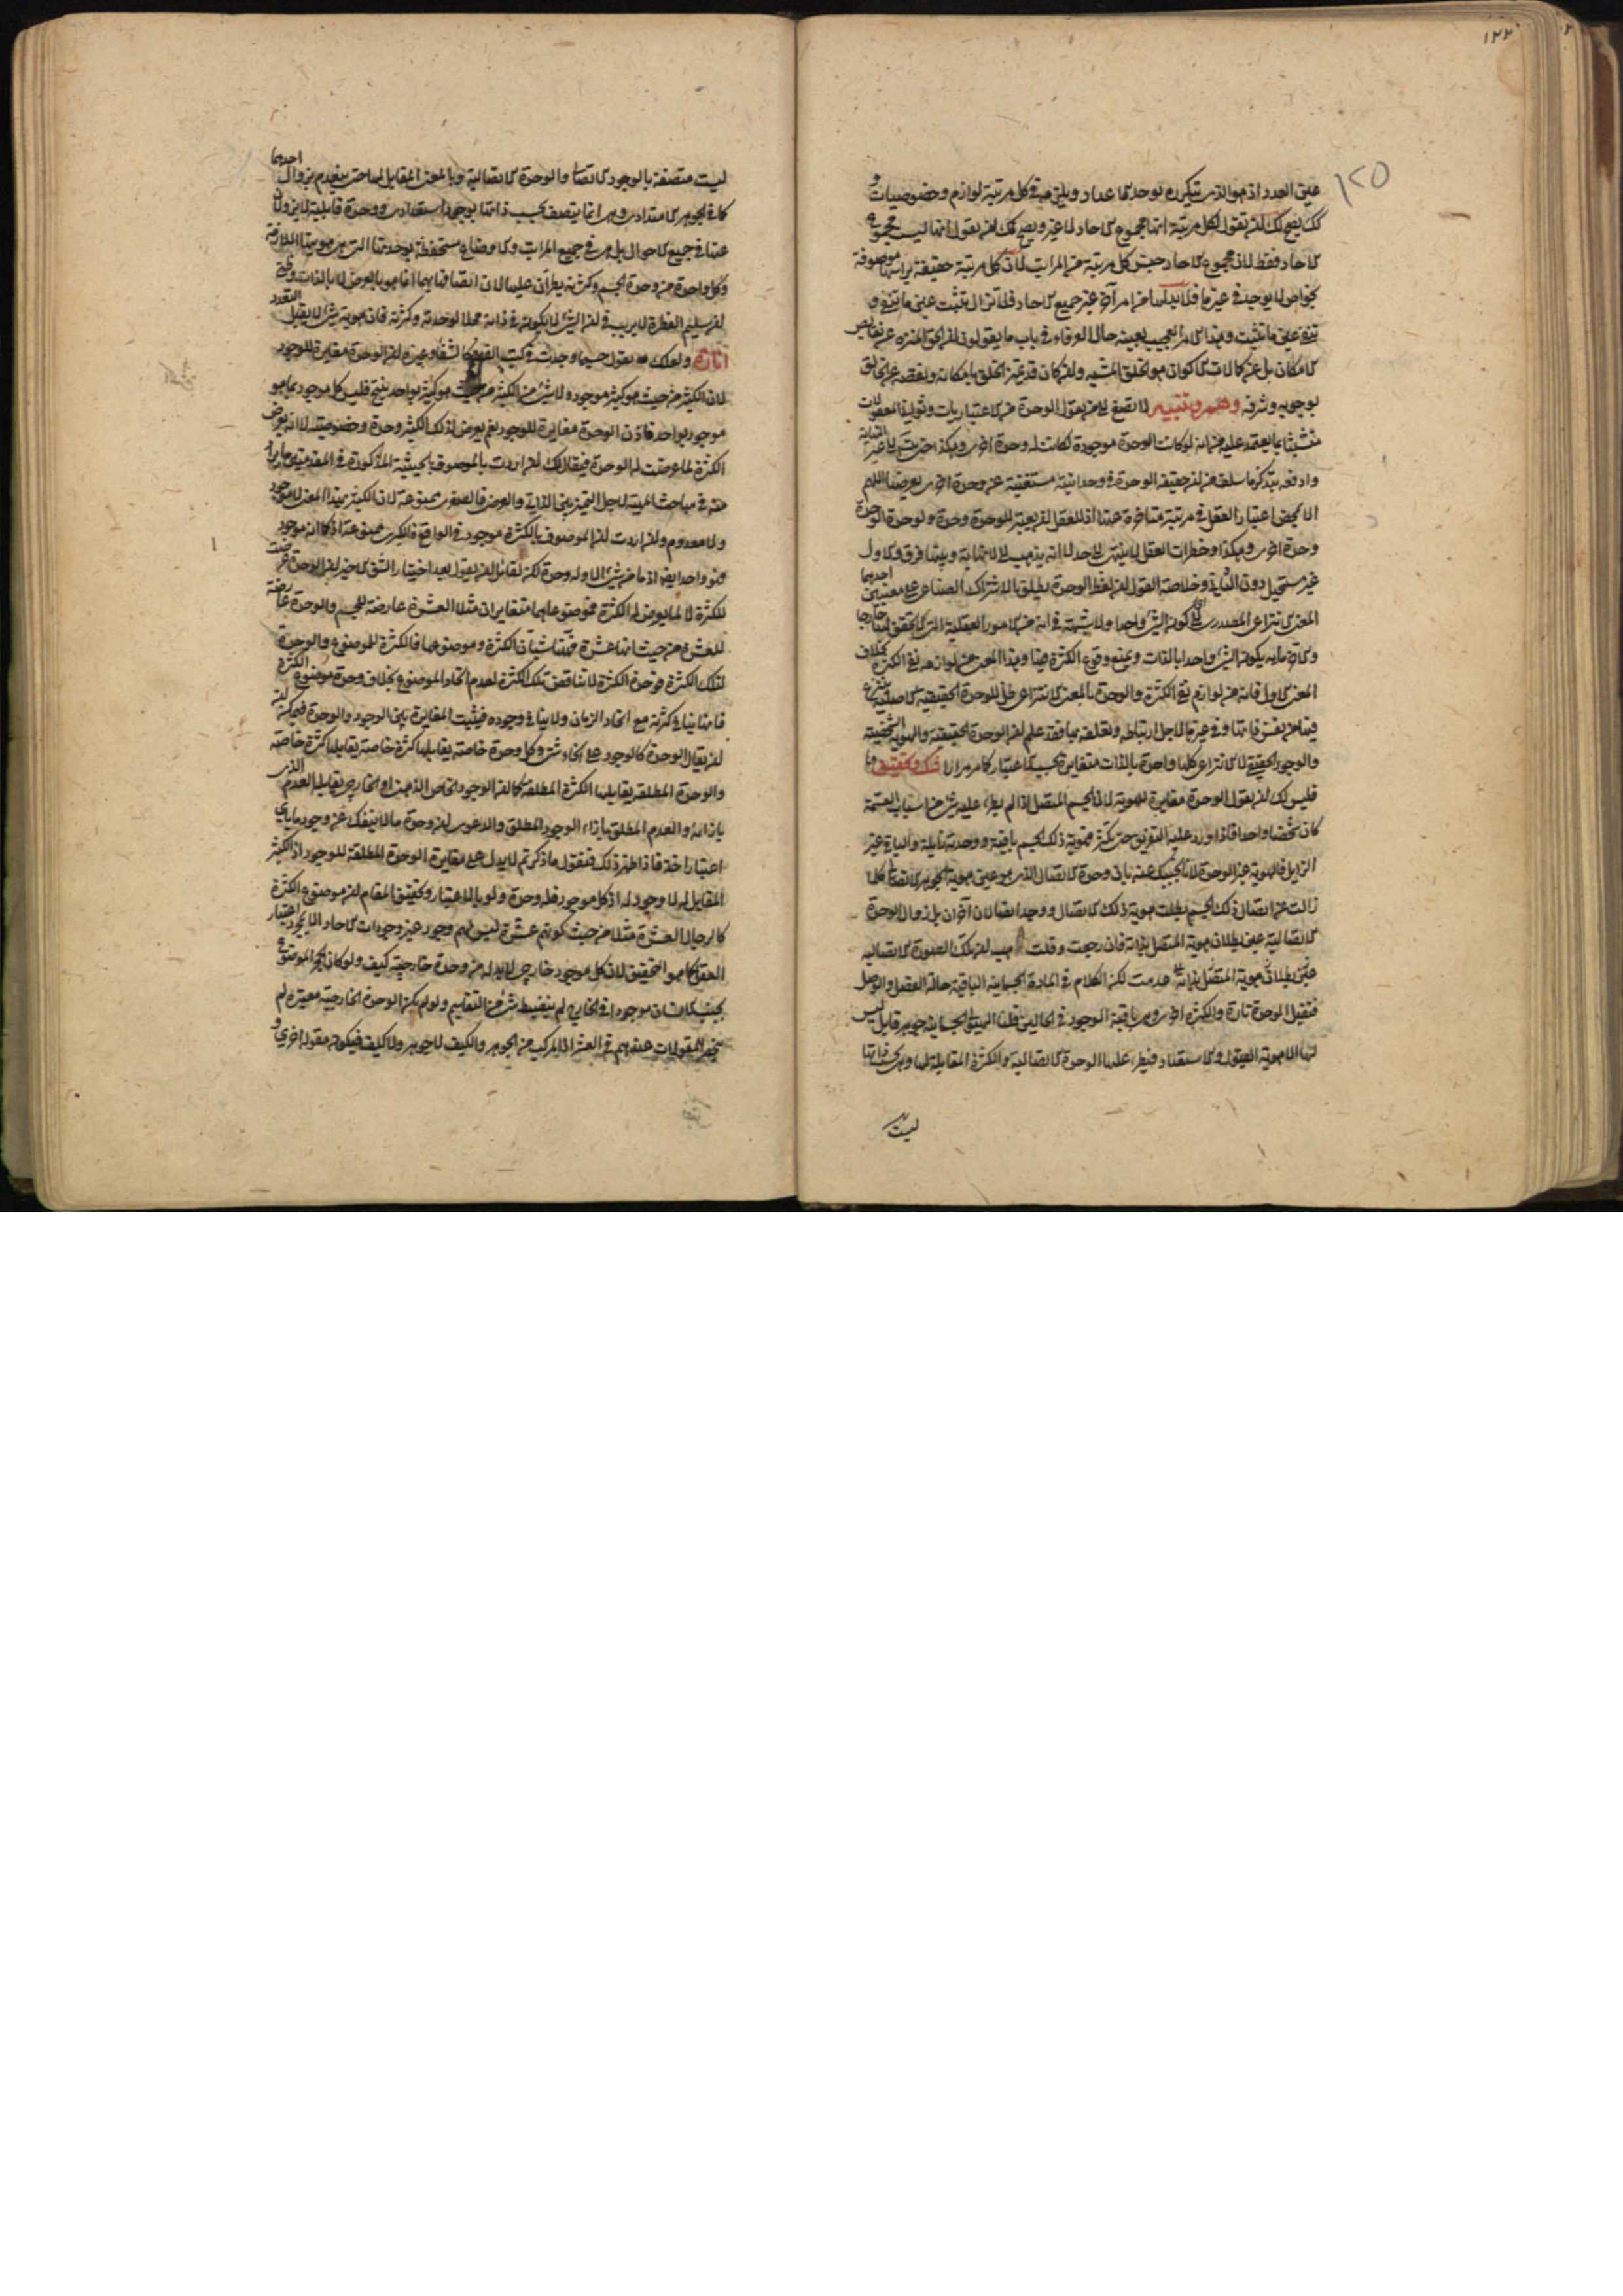 ١٢٢
١٢٥
عين العدد اذ هو الذي يتكرره توجد الاعداد ويلزمه في كل مرتبة لوازم وخصوصيات و
كك يصح لك ان تقول لكل مرتبة انها مجموع الاحاد لا غير ويصح لك ان تقول انها ليست مجموع
الاحاد فقط لان مجموع الاحاد جنس كل مرتبة من المراتب لان كل مرتبة حقيقة براسها موصوفة
بخواص لا يوجد في غيرها فلا بد لها من امر آخر غير جميع الاحاد فلا تزال تثبت عين ما تنفي و
تنفي عين ما تثبت وهذا الامر العجيب بعينه حال العرفاء في باب ما يقولون ان الحق المنزه عن نقايص
الامكان بل عن كمالات الاكوان هو الخلق المشبه وان كان قد تميز الخلق بامكانه ونقصه عن الخالق
بوجوبه وشرفه وهم وتنبيه لا تصغ الى من يقول الوحدة من الاعتباريات وثواني المعقولات
متشبثا بما يعتمد عليه من انه لو كانت الوحدة موجودة لكانت له وحدة اخرى وهكذا حتى يتسلسل الى غير النهاية
وادفعه بتذكر ما سلف من ان حقيقة الوحدة في وحدانيته مستغنية عن وحدة اخرى يعرضها اللهم
الا بمحض اعتبار العقل في مرتبة متاخرة عنها اذ للعقل ان يعتبر للوحدة وحدة ولوحدة الوحدة
وحدة اخرى وهكذا وخطرات العقل لا ينتهي الى حد لا انه يذهب الى لا نهاية وبينهما فرق والاول
غير مستحيل دون الثاني وخلاصة القول ان لفظ الوحدة يطلق بالاشتراك الصناعي على معنيين احدهما
المعنى الانتزاعي المصدري اي كون الشيء واحدا ولا شبهة في انه من الامور العقلية التي لا تحقق لها خارجا
والاخر ما به يكون الشيء واحدا بالذات ويمنع وقوع الكثرة فيها وهذا المعنى من لوازمه نفي الكثرة بخلاف
المعنى الاول فانه من لوازم نفي الكثرة والوحدة بالمعنى الانتزاعي ظل للوحدة الحقيقية الاصلية ينتزع
فيها من نفس ذاتها وفي غيرها لاجل ارتباطه وتعلقه بها فقد علم ان الوحدة الحقيقية والهوية الشخصية
والوجود الحقيقي لا الانتزاعي كلها واحدة بالذات متغايرة بحسب الاعتبار كما مر مرارا شك وتحقيق
فليس لك ان تقول الوحدة مغايرة للهوية لان الجسم المتصل اذا لم يطرء عليه شيء من اسباب القسمة
كان شخصا واحدا فاذا ورد عليه التفريق حتى تكثر فهوية ذلك الجسم باقية ووحدته زايلة والباقي غير
الزايل فالهوية غير الوحدة لانا نجيبك عنه بان وحدة الاتصال الذي هو عين هوية الجوهر الاتصالي كلما
زالت عن اتصال ذلك الجسم بطلت هوية ذلك الاتصال ووجد اتصالان آخران بل زوال الوحدة
الاتصالية عين بطلان هوية المتصل بذاته فان رجعت وقلت هب ان تلك الصورة الاتصاليه
عين بطلان هوية المتصل بذاته عدمت لكن الكلام في المادة الجسمانية الباقية حالة الفصل والوصل
فتقبل الوحدة تارة والكثرة اخرى وهي باقية الوجود في الحالين قلنا الهيولى الجسمانية جوهر قابل ليس
لها الا هوية القبول والاستعداد فيطرء عليها الوحدة الاتصالية والكثرة المقابلة لها وهي في ذاتها
ليست
ليست متصفة بالوجود الاتصالي والوحدة الاتصالية وبالمعنى المقابل لها حتى ينعدم بزوال احدهما
كما في الجوهر الامتدادي وهي انما يتصف بحسب ذاتها بوجود استعدادي ووحدة قابلية لا يزولان
عنها في جميع الاحوال بل هي في جميع المراتب والاوضاع مستحفظة بوحدتها التي هي هويتها اللازمة
وكل واحدة من وحدة الجسم وكثرته يطرآن عليها الا ان اتصافها بهما انما هو بالعرض لا بالذات وبحق
ان سليم الفطرة لا يريب في ان الشيء لا يكون في ذاته محلا لوحدته وكثرته فان هوية شيء لا يقبل التعدد
اشارة ولعلك تقول حسبما وجدت في كتب القوم كالشفا وغيره ان الوحدة مغايرة للوجود
لان الكثير من حيث هو كثير موجود ولا شيء من الكثير من حيث هو كثير بواحد ينتج فليس كل موجود بما هو
موجود بواحد فاذن الوحدة مغايرة للوجود نعم يعرض لذلك الكثير وحدة وخصوصية لا انه يعرض
الكثرة لما عرضت له الوحدة فيقال لك ان اردت بالموصوف بالحيثية المذكورة في المقدمتين ما يراد
منه في مباحث الماهية لاجل التميز بين الذاتي والعرضي فالصغرى ممنوعة لان الكثير بهذا المعنى لا موجود
ولا معدوم وان اردت ان الموصوف بالكثرة موجود في الواقع فالكبرى ممنوعة اذ كما انه موجود
فهو واحد ايضا اذ ما من شيء الا وله وحدة لكن لقائل ان يقول بعد اختيار الشق الاخير ان الوحدة عرضت
للكثرة لا لما يعرض له الكثرة فموضوعاهما متغايران مثلا العشرة عارضة للجسم والوحدة عارضة
للعشرة من حيث انها عشرة فههنا شيئان الكثرة وموضوعها فالكثرة للموضوع والوحدة
لتلك الكثرة فوحدة الكثرة لا تناقض تلك الكثرة لعدم اتحاد الموضوع بخلاف وحدة موضوع الكثرة
فانها ينافي كثرته مع اتحاد الزمان ولا ينافي وجوده فيثبت المغايرة بين الوجود والوحدة فيمكنه
ان يقال الوحدة كالوجود على انحاء شتى وكل وحدة خاصة يقابلها كثرة خاصة يقابلها كثرة خاصة
والوحدة المطلقة يقابلها الكثرة المطلقة كما ان الوجود الخاص الذهني او الخارجي يقابله العدم الذي
بازائه والعدم المطلق بازاء الوجود المطلق والدعوى ان وحدة ما لا ينفك عن وجود ما باي
اعتبار اخذ فاذا ظهر ذلك فنقول ما ذكرتم لا يدل على مغايرة الوحدة المطلقة للوجود اذ الكثير
المقابل له لا وجود له اذ كل موجود فله وحدة ولو بالاعتبار وتحقيق المقام ان موضوع الكثرة
كالرجال العشرة مثلا من حيث كونهم عشرة ليس لهم وجود غير وجودات الاحاد الا بمجرد اعتبار
العقل كما هو التحقيق لان كل موجود خارجي لا بد له من وحدة خارجية كيف ولو كان الحجر الموضوع
بجنب الانسان موجودا في الخارج لم ينضبط شيء من التقاسيم ولو لم يكن الوحدة الخارجية معتبرة لم
ينحصر المقولات عندهم في العشر اذ المركب من الجوهر والكيف لا جوهر ولا كيف فيكون مقولة اخرى و